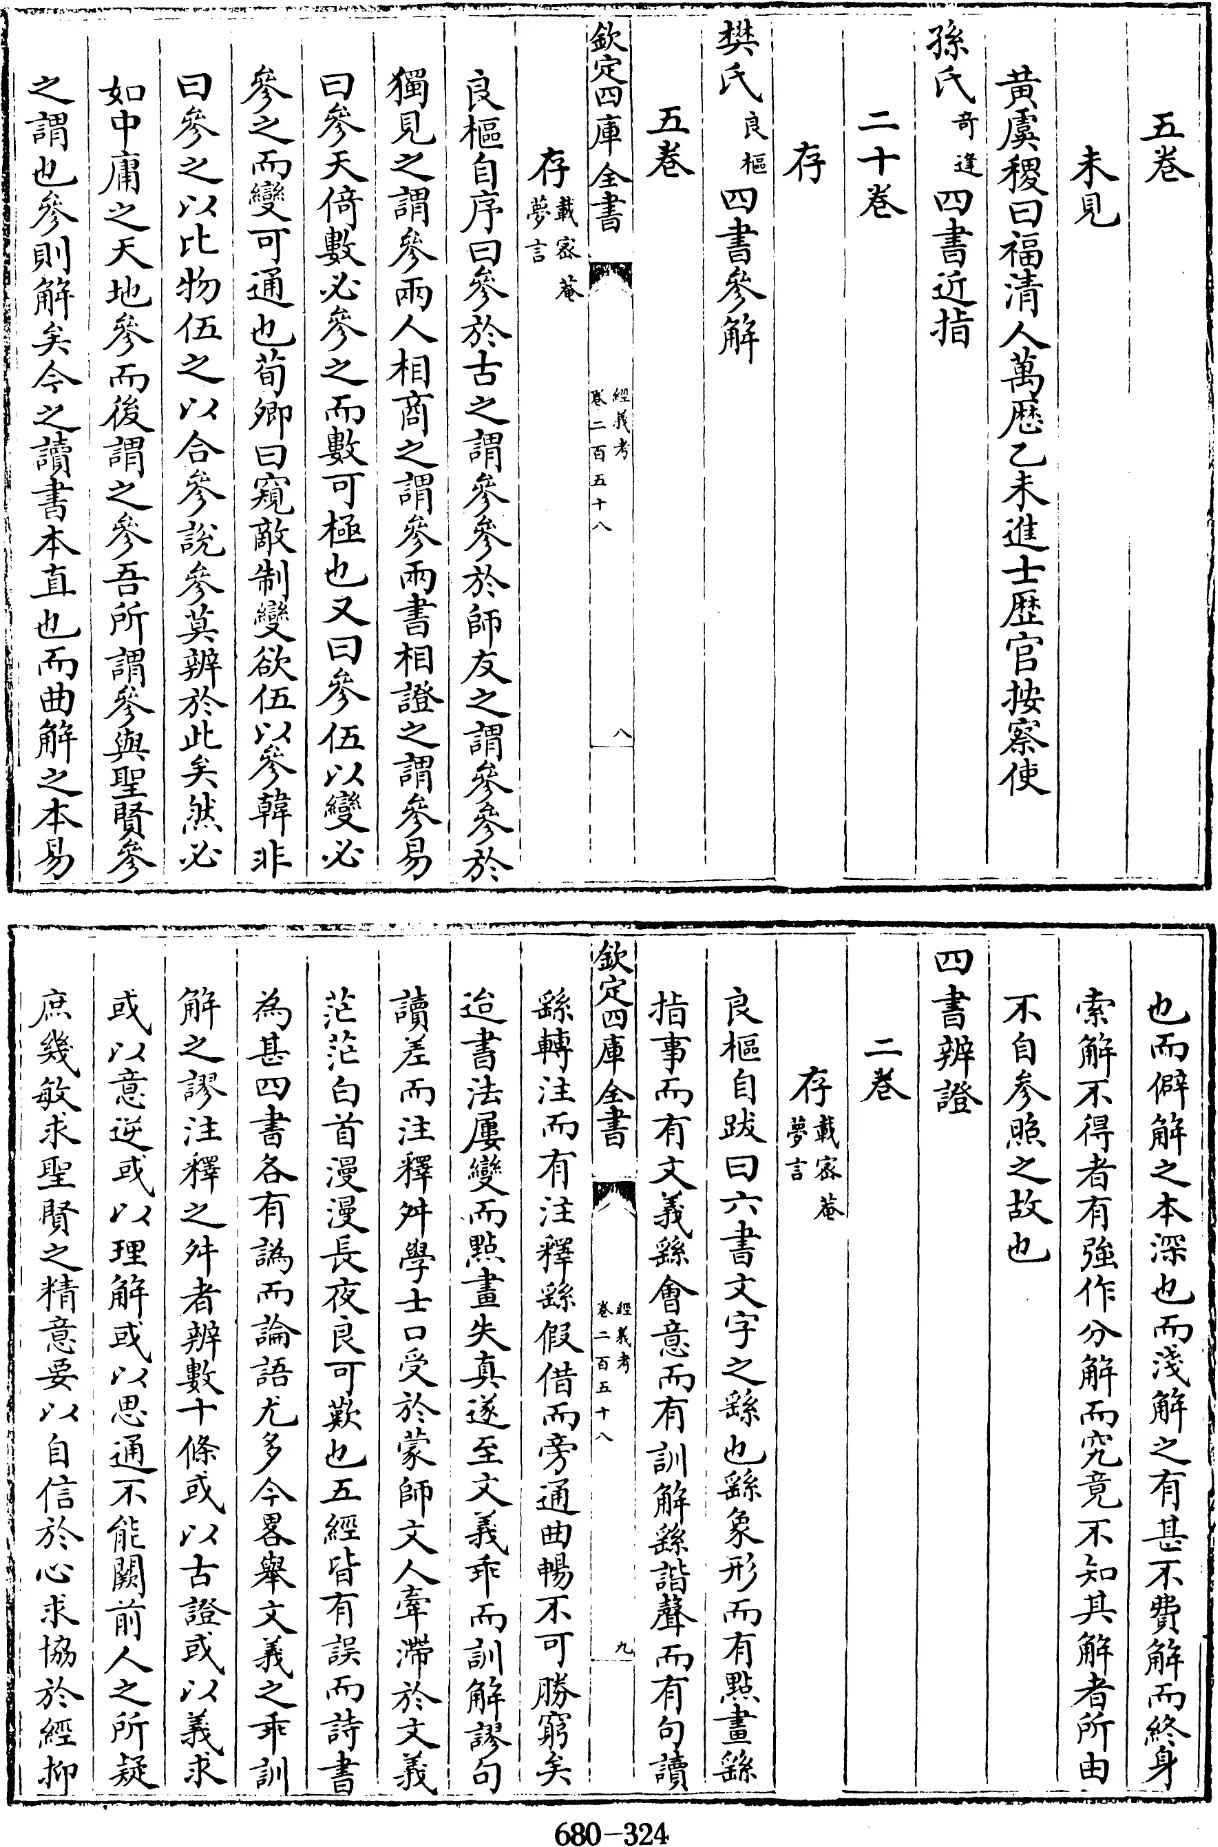 五卷
未見
黃虞稷曰福清人萬歷乙未進士歷官按察使
孫氏奇逢四書近指
二十卷
存
樊氏良樞四書參解
五卷
欽定四庫全書 經義考卷二百五十八 八
存載密菴夢言
良樞自序曰參於古之謂參參於師友之謂參參於
獨見之謂參兩人相商之謂參兩書相證之謂參易
曰參天倚數必參之而數可極也又曰參伍以變必
參之而變可通也荀卿曰窺敵制變欲伍以參韓非
曰參之以比物伍之以合參說參莫辨於此矣然必
如中庸之天地參而後謂之參吾所謂參與聖賢參
之謂也參則解矣今之讀書本直也而曲解之本易
也而僻解之本深也而淺解之有甚不費解而終身
索解不得者有強作分解而究竟不知其解者所由
不自參照之故也
四書辨證
二卷
存載密菴夢言
良樞自跋曰六書文字之繇也繇象形而有點畫繇
指事而有文義繇會意而有訓解繇諧聲而有句讀
欽定四庫全書 經義考卷二百五十八 九
繇轉注而有注釋繇假借而旁通曲暢不可勝窮矣
迨書法屢變而點畫失真遂至文義乖而訓解謬句
讀差而注釋舛學士口受於蒙師文人牽滯於文義
茫茫白首漫漫長夜良可歎也五經皆有誤而詩書
為甚四書各有譌而論語尤多今畧舉文義之乖訓
解之謬注釋之舛者辨數十條或以古證或以義求
或以意逆或以理解或以思通不能闕前人之所疑
庶幾敏求聖賢之精意要以自信於心求協於經抑
680-324